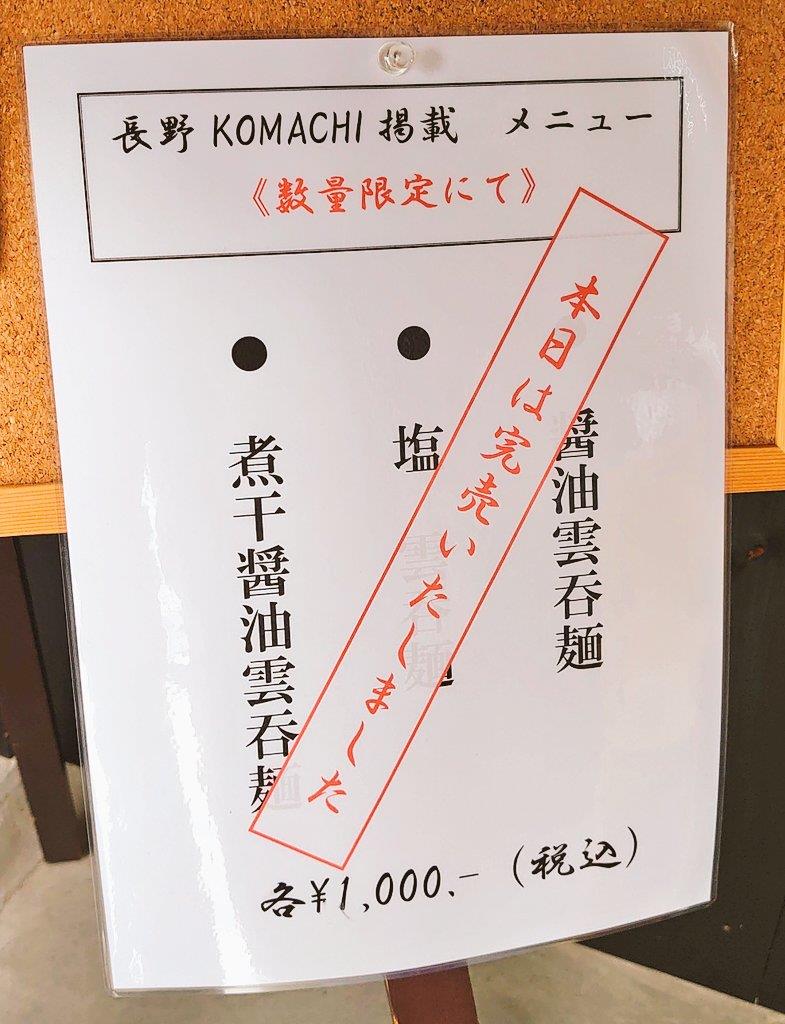 長野 KOMACHI 掲載　メニュー
《数量限定にて》
醤油雲呑麺
● 塩雲呑麺
● 煮干醤油雲呑麺
本日は完売いたしました
各¥1,000.-（税込）